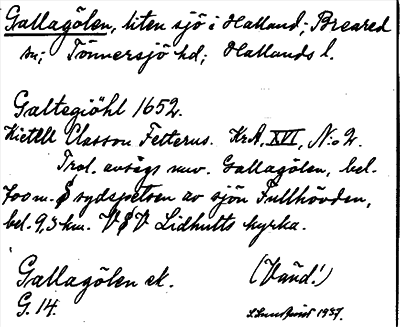 Gallagölen, liten sjö i Halland; Breared
sn; Tönnersjö hd; Hallands l.
Galtegiöhl 1652.
Kietell Classon Felterus. KrA, XVI, N:o 2.
Trol. avsegs nuv. Gallagölen, bel.
700 m. S sydspetsen av sjön Fullhövden,
bel. 9,3 km. VSV Lidhults kyrka.
Gallagölen ek. (Vänd!)
G. 14. 1937.